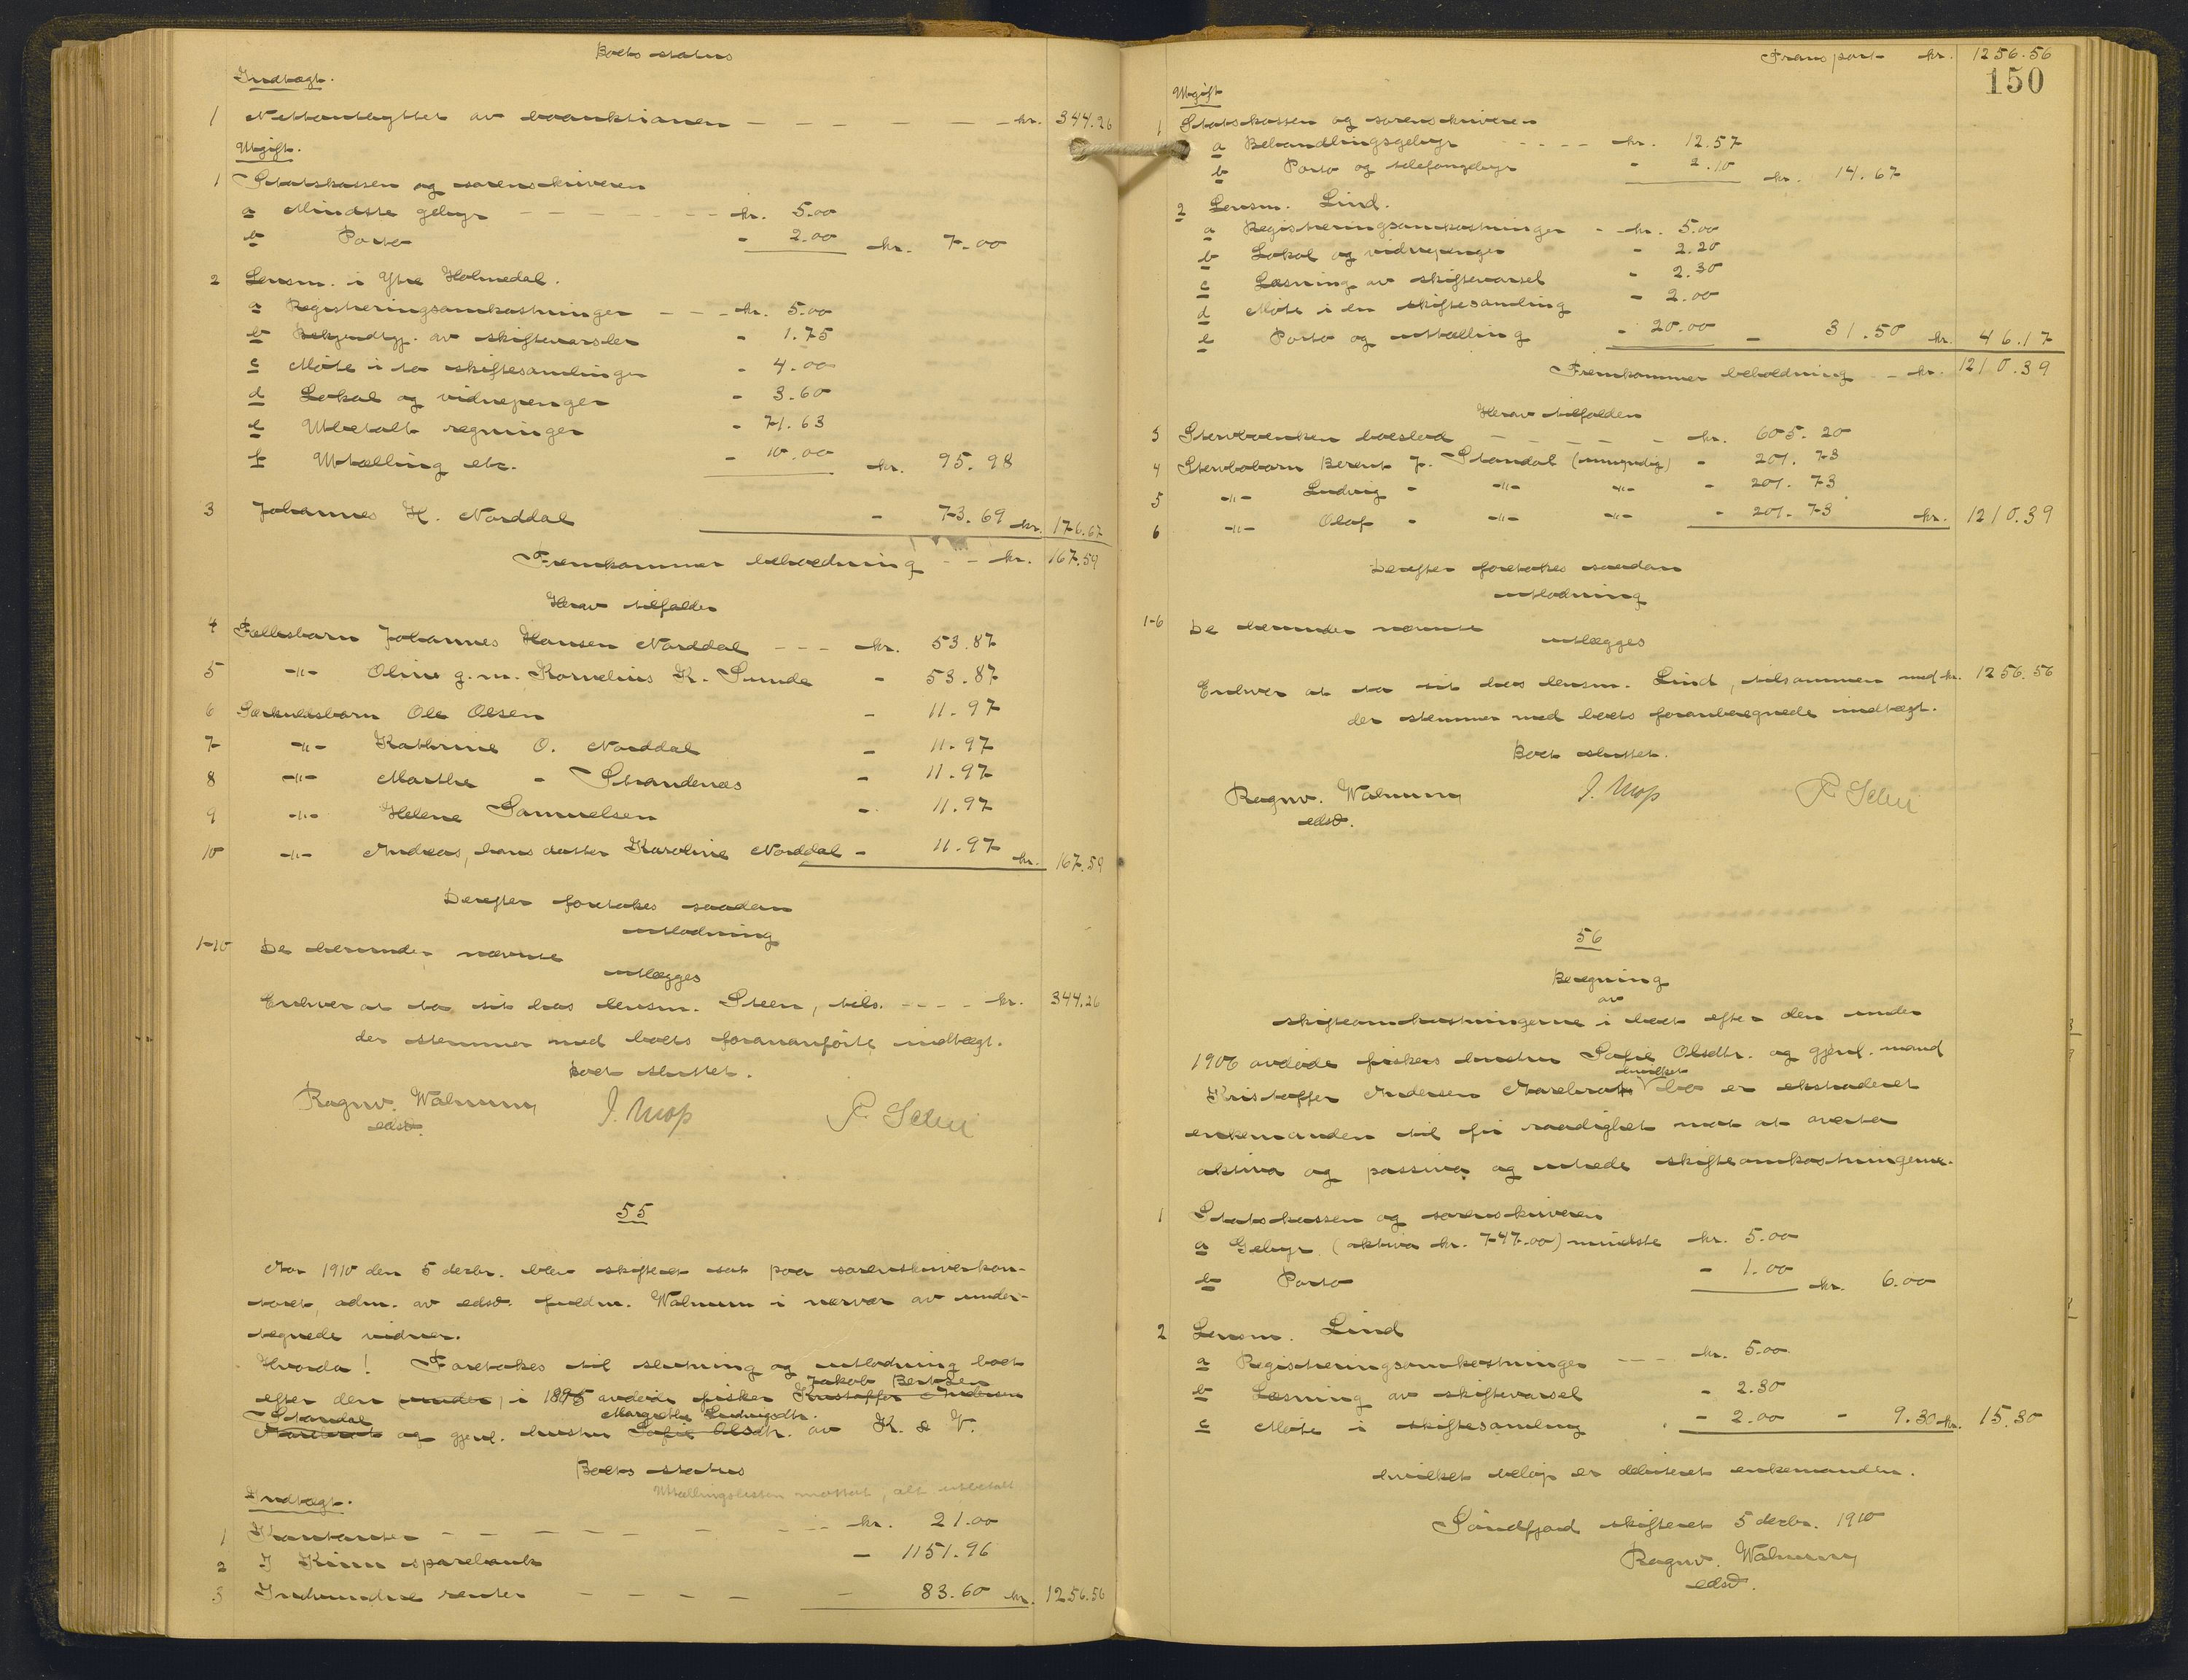 Boets status
Indtægt.
1 Nettoutbyttet av boauktionen — — — — — — kr. 344.26
Utgift.
1 Statskassen og sorenskriveren
a Mindste gebyr — — — — — — — kr. 5.00
b Porto - 2.00 kr. 7.00
2 Lensm. i Ytre Holmedal.
a Registreringsomkostninger — — — kr. 5.00
b Bekjendtgj. av skiftevarsler - 1.75
c Møte i to skiftesamlinger - 4.00
d Lokal og vidnepenger - 3.60
e Utbetalt regninger - 71.63
f Uttælling etc. - 10.00 kr. 95.98
3 Johannes H. Norddal - 73.69 kr. 176.67
Fremkommer beholdning - - kr. 167.59
Herav tilfalder
4 Fællesbarn Johannes Hansen Norddal - - - kr. 53.87
5 -"- Oline g.m. Kornelius K. Sunde - 53.87
6 Særkuldsbarn Ole Olsen - 11.97
7 -"- Kathrine O. Norddal - 11.97
8 -"- Marthe - Strandenæs - 11.97
9 -"- Helene Samuelsen - 11.97
10 -"- Andreas, hans datter Karoline Norddal - 11.97 kr. 167.59
Derefter foretokes saadan
utlodning
1-10 De herunder nævnte
utlægges
Enhver at ta sit hos lensm. Steen, tils. - - - - kr. 344.26
der stemmer med boets forananførte indtægt.
Boet sluttet.
Ragnv. Walnum J. Mop
edsv.
55
Aar 1910 den 5 decbr. blev skifteret sat paa sorenskriverkon-
toret, adm. av edsv. fuldm. Walnum i nærvær av under-
tegnede vidner.
Hvorda! Foretokes til slutning og utlodning boet
Jakob Bertsen
efter den (under) i 1895 avdøde fisker Kristoffer Andersen
Standal Margrethe Ludvigsdtr.
Aarebrot og gjenl. hustru Sofie Olsdtr. av K. & V.
Boets status
Uttællingslisten mottat, alt utbetalt
Indtægt.
1 Kontanter — — — — — — — kr. 21.00
2 I Kinn sparebank - 1151.96
3 Indvundne renter — — — — - 83.60 kr. 1256.56
Transport kr. 1256.56
150
Utgift
1 Statskassen og sorenskriveren
a Behandlingsgebyr - - - - - kr. 12.57
b Porto og telefongebyr - 2.10 kr. 14.67
2 Lensm. Lind.
a Registreringsomkostninger - kr. 5.00
b Lokal og vidnepenger - 2.20
c Læsning av skiftevarsel - 2.30
d Møte i en skiftesamling - 2.00
e Porto og uttælling - 20.00 - 31.50 kr. 46.17
Fremkommer beholdning - kr. 1210.39
Herav tilfalder
3 Stervboenken boeslod — — — — — kr. 605.20
4 Stervbobarn Berent J. Standal (umyndig) - 201.73
5 -"- Ludvig - -"- -"- - 201.73
6 -"- Olaf - -"- -"- - 201.73 kr. 1210.39
Derefter foretokes saadan
utlodning
1-6 De herunder nævnte
utlægges
Enhver at ta sit hos lensm. Lind, tilsammen med kr. 1256.56
der stemmer med boets foranberegnede indtægt.
Boet sluttet.
Ragnv. Walnum J. Mop
edsv.
56
Beregning
av
skifteomkostningerne i boet efter den under
1906 avdøde fiskers hustru Sofie Olsdtr. og gjenl. mand
hvilket
Kristoffer Andersen Aarebrot bo er ekstraderet
enkemanden til fri raadighet mot at overta
aktiva og passiva og utrede skifteomkostningerne.
1 Statskassen og sorenskriveren
a Gebyr (aktiva kr. 747.00) mindste kr. 5.00
b Porto - 1.00 kr. 6.00
2 Lensm. Lind
a Registreringsomkostninger - - - kr. 5.00
b Læsning av skiftevarsel - 2.30
c Møte i skiftesamling - 2.00 - 9.30 kr. 15.30
hvilket beløp er debiteret enkemanden.
Søndfjord skifteret 5 decbr. 1910
Ragnv. Walnum
edsv.